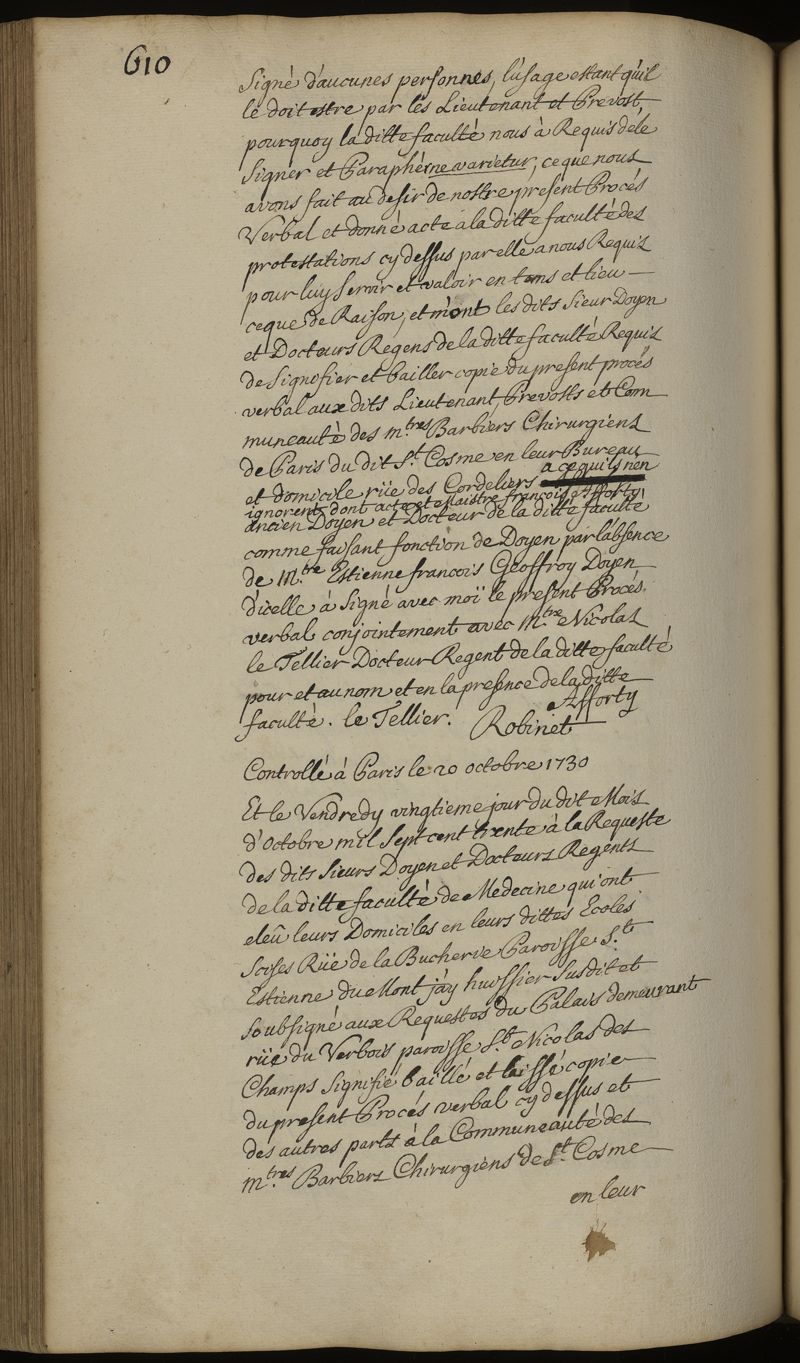 610
Signé d'aucunes personnes, l'usage estant qu'il
le doit estre par les Lieutenant et Prevost,
pourquoy la ditte faculté nous à Requis de le
Signer et Paraphér ne varietur, ce que nous
avons fait au desir de nostre present Procés
Verbal et donné acte a la ditte faculté des
protestations cy dessus par elle a nous Requis
pour luy servir et valoir en tems et lieu
ce que de Raison, et m'ont les dits Sieur Doyen
et Docteurs Regens de la ditte faculté Requis
de Signifier et bailler copie du present procés
verbal aux dits Lieutenant, Prevosts et Com
muneauté des m.tres Barbiers Chirurgiens
de Paris du dit S.t Cosme en leur Bureau
et domicile rüe des Cordeliers a ce qu'ils n'en
ignorent dont acte et Maistre françois Afforty
ancien Doyen et Docteur de la ditte faculté
comme faisant fonction de Doyen par l'absence
de M.tre Estienne francois Geoffroy Doyen
d'icelle à Signé avec moï le present Procés
verbal conjointement avec M.tre Nicolas
le Tellier Docteur Regent de la ditte faculté
pour et au nom et en la presence de la ditte
faculté. le Tellier. Robinet Afforty
Controllé à Paris le 20 octobre 1730
Et le Vendredy vingtieme jour du dit Mois
d'Octobre mil Sept cent trente à la Requeste
des dits Sieurs Doyen et Docteurs Regents
de la ditte faculté de Medecine qui ont
eleû leurs Domiciles en leurs dittes Ecoles
Scises Rüe de la Bucherie Paroisse S.t
Estienne du Mont j'ay huissier Susdit et
Soubsigné aux Requestes du Palais demeurant
rüe du Verbois paroisse S.t Nicolas des
Champs Signifié baillé et laissé copie
du present Procés verbal cy dessus et
des autres parts à la Communeauté des
m.tres Barbiers Chirurgiens de S.t Cosme
en leur